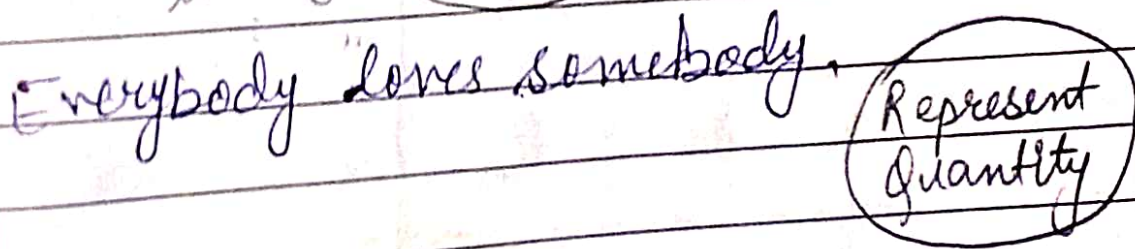 Everybody loves somebody.
Represent
Quantity